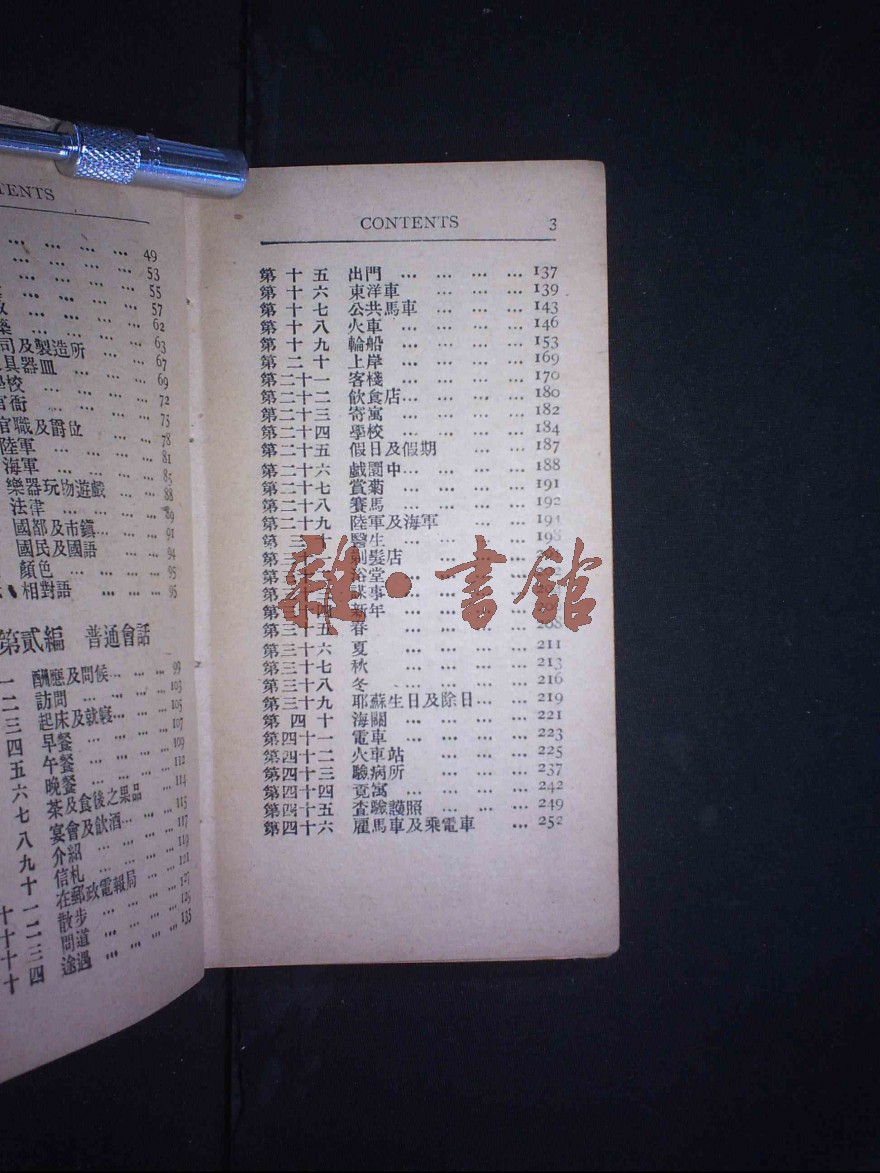 TENTS
... ... ... ... 49
... ... ... ... 53
... ... ... ... 55
... ... ... ... 57
築 ... ... ... 62
司及製造所 ... ... 63
具器皿 ... ... ... 67
學校 ... ... ... 69
官衙 ... ... ... 72
官職及爵位 ... ... 75
陸軍 ... ... ... ... 78
海軍 ... ... ... ... 81
... 85
樂器玩物遊戲 ... ... 88
法律 ... ... ... ... 89
國都及市鎮... ... ... 91
國民及國語 ... ... 94
顏色 ... ... ... ... 95
相對語 ... ... ... 95
第貳編 普通會話
一 酬應及問候... ... ... 99
二 訪問 ... ... ... ... 103
三 起床及就寢... ... ... 105
四 早餐 ... ... ... ... 107
五 午餐 ... ... ... ... 109
六 晚餐 ... ... ... ... 112
七 茶及食後之果品 ... 114
八 宴會及飲酒... ... ... 115
九 介紹 ... ... ... ... 117
十 信札 ... ... ... ... 119
十一 在郵政電報局 ... ... 121
十二 散步 ... ... ... ...
十三 問道 ... ... ... ...
十四 途遇 ... ... ... ... 133
CONTENTS 3
第十五 出門 ... ... ... ... 137
第十六 東洋車 ... ... ... 139
第十七 公共馬車 ... ... ... 143
第十八 火車 ... ... ... ... 146
第十九 輪船 ... ... ... ... 153
第二十 上岸 ... ... ... ... 169
第二十一 客棧 ... ... ... ... 170
第二十二 飲食店... ... ... ... 180
第二十三 寄寓 ... ... ... ... 182
第二十四 學校 ... ... ... ... 184
第二十五 假日及假期 ... ... 187
第二十六 戲園中... ... ... ... 188
第二十七 賞菊 ... ... ... ... 191
第二十八 賽馬 ... ... ... ... 192
第二十九 陸軍及海軍 ... ... 194
第三十 醫生 ... ... ... ... 198
第三十一 剃髮店 ... ... ...
第三十二 浴堂 ... ... ... ...
第三十三 謀事 ... ... ... ...
第三十四 新年 ... ... ... ...
第三十五 春 ... ... ... ... 208
第三十六 夏 ... ... ... ... 211
第三十七 秋 ... ... ... ... 213
第三十八 冬 ... ... ... ... 216
第三十九 耶蘇生日及除日... ... 219
第四十 海關 ... ... ... ... 221
第四十一 電車 ... ... ... ... 223
第四十二 火車站 ... ... ... 225
第四十三 驗病所 ... ... ... 237
第四十四 覓寓 ... ... ... ... 242
第四十五 查驗護照 ... ... ... 249
第四十六 雇馬車及乘電車 ... 252
雜·書館